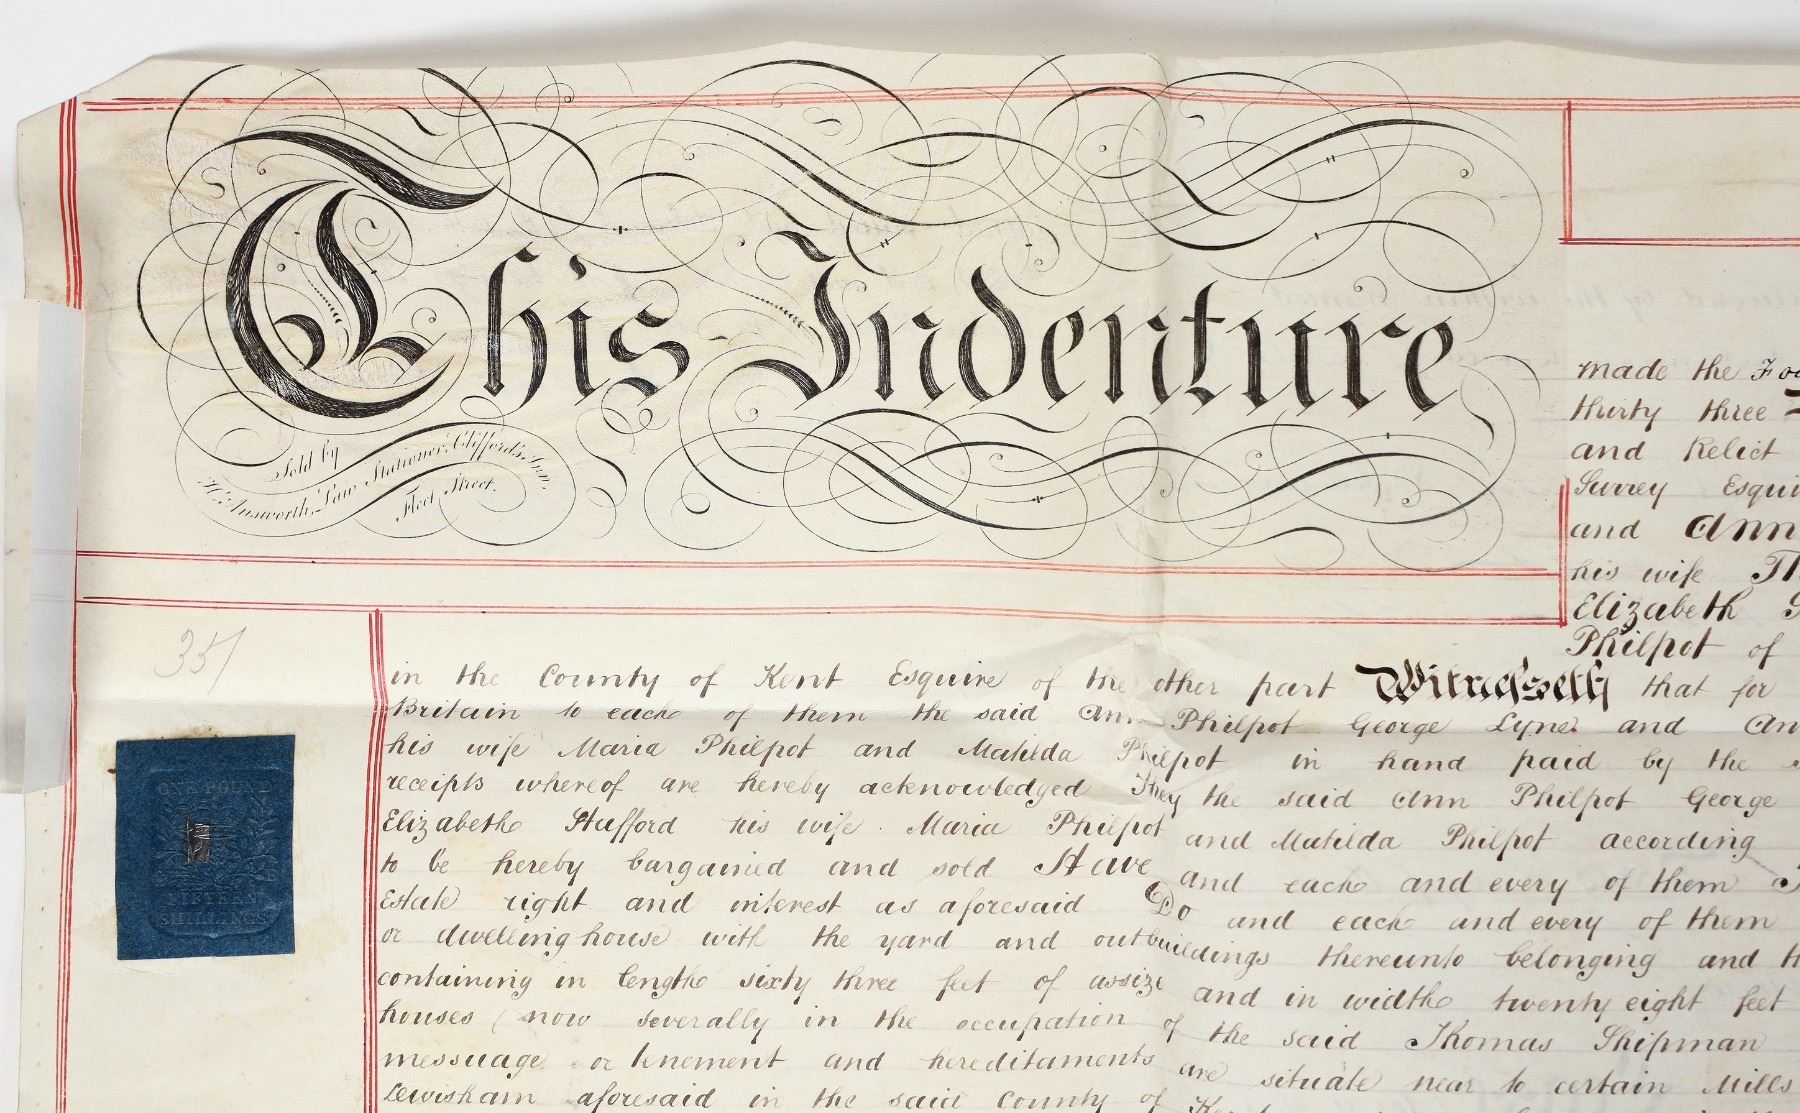 This Indenture
Sold by
H. Ainsworth, Law Stationer, Clifford's Inn,
Fleet Street.
made the
thirty three
and Relict
Surrey
and Ann
his wife
Elizabeth
Philpot of
351
in the County of Kent Esquire of the other part Witnesseth that for
Britain to each of them the said Ann Philpot George Lyne and
his wife Maria Philpot and Matilda Philpot in hand paid by the
receipts whereof are hereby acknowledged They the said Ann Philpot George
Elizabeth Stafford his wife Maria Philpot and Matilda Philpot according
to be hereby bargained and sold Have and each and every of them
Estate right and interest as aforesaid Do and each and every of them
or dwelling house with the yard and outbuildings thereunto belonging and
containing in length sixty three feet of assize and in width twenty eight feet
houses (now severally in the occupation of the said Thomas Shipman
messuage or tenement and hereditaments are situate near to certain Mills
Lewisham aforesaid in the said County of Kent
ONE POUND
FIFTEEN
SHILLINGS